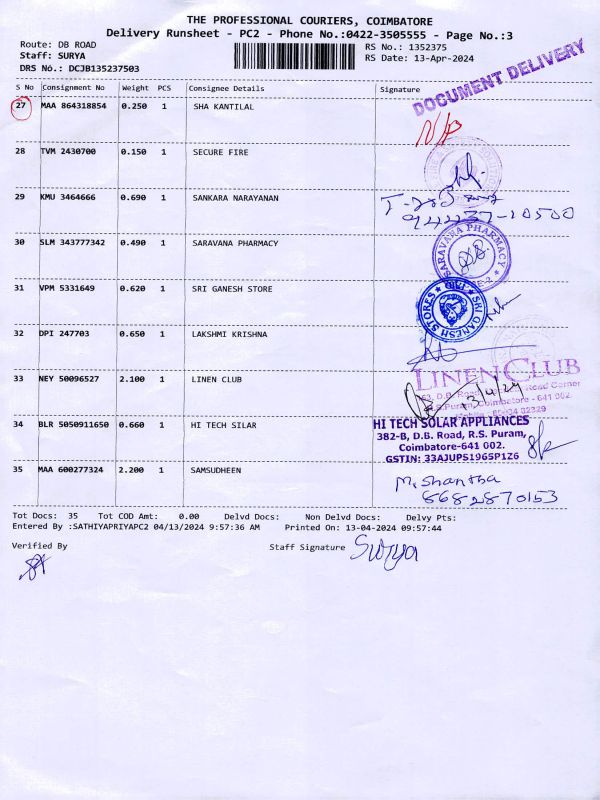 THE PROFESSIONAL COURIERS, COIMBATORE
Delivery Runsheet - PC2 - Phone No.:0422-3505555 - Page No.:3
Route: DB ROAD
Staff: SURYA
DRS No.: DCJB135237503
RS No.: 1352375
RS Date: 13-Apr-2024
DOCUMENT DELIVERY
S No Consignment No Weight PCS Consignee Details Signature
27 MAA 864318854 0.250 1 SHA KANTILAL
28 TVM 2430700 0.150 1 SECURE FIRE
29 KMU 3464666 0.690 1 SANKARA NARAYANAN
30 SLM 343777342 0.490 1 SARAVANA PHARMACY
SARAVANA PHARMACY
31 VPM 5331649 0.620 1 SRI GANESH STORE
SRI GANESH STORES
32 DPI 247703 0.650 1 LAKSHMI KRISHNA
33 NEY 50096527 2.100 1 LINEN CLUB
LINEN CLUB
Road Corner
R.S.Puram, Coimbatore - 641 002.
13/4/24
34 BLR 5050911650 0.660 1 HI TECH SILAR
HI TECH SOLAR APPLIANCES
382-B, D.B. Road, R.S. Puram,
Coimbatore-641 002.
GSTIN: 33AJUPS1965P1Z6
35 MAA 600277324 2.200 1 SAMSUDHEEN
M. Shantha
8682870153
Tot Docs: 35 Tot COD Amt: 0.00 Delvd Docs: Non Delvd Docs: Delvy Pts:
Entered By :SATHIYAPRIYAPC2 04/13/2024 9:57:36 AM Printed On: 13-04-2024 09:57:44
Verified By
Staff Signature Surya